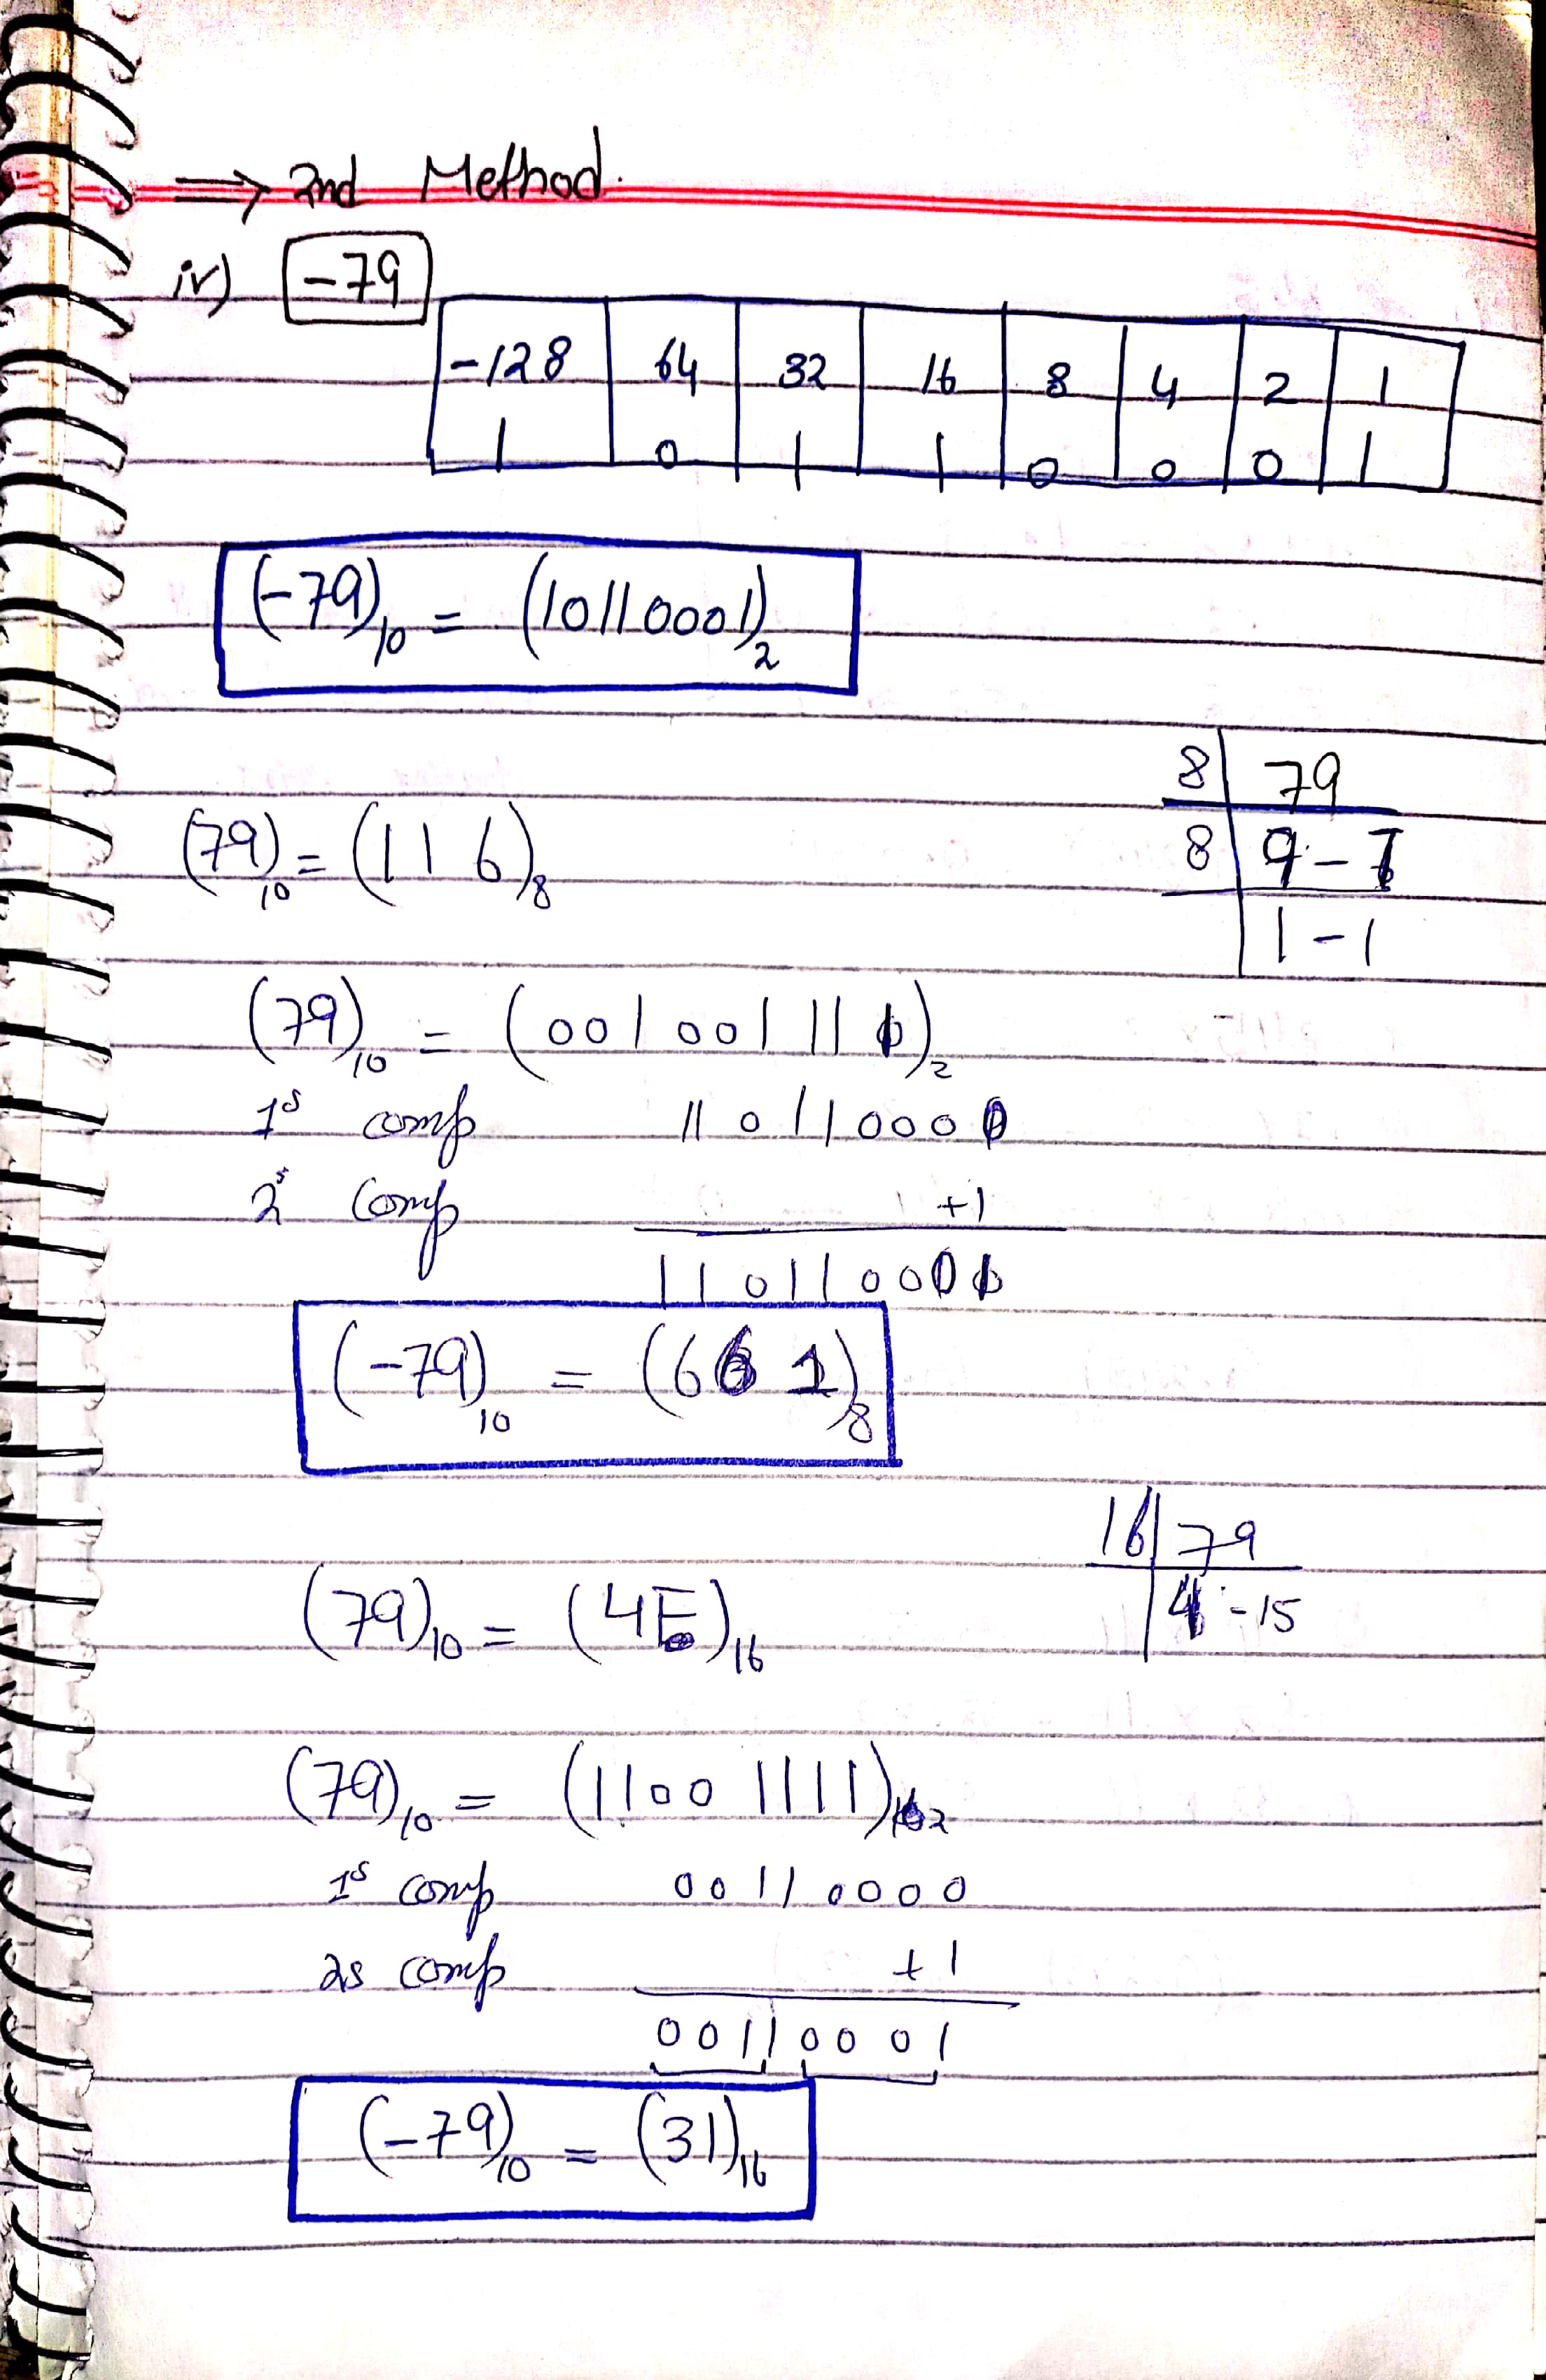 ⇒ 2nd Method.
iv) -79
-128 64 32 16 8 4 2 1
1 0 1 1 0 0 0 1
(-79)₁₀ = (10110001)₂
8 79
8 9-7
1-1
(79)₁₀ = (116)₈
(79)₁₀ = (001 001 111)₂
1s comp 110110000
2s comp +1
110110001
(-79)₁₀ = (661)₈
16 79
4-15
(79)₁₀ = (4E)₁₆
(79)₁₀ = (1100 1111)₂
1s comp 00110000
2s comp +1
00110001
(-79)₁₀ = (31)₁₆